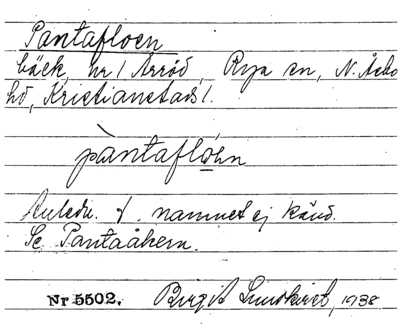 Pantafloen
bäck, nr 1 Årröd, Rya sn, N. Åsbo
hd, Kristianstads l.
pàntaflọhn
Anledn. t. namnet ej känd.
Se Pantaåkern.
Nr 5502. Birgit Lundkvist, 1938